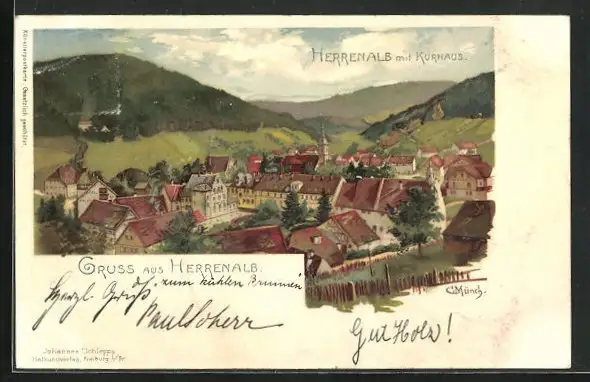 Künstlerpostkarte. Gesetzlich geschützt.
HERRENALB mit KURHAUS.
GRUSS AUS HERRENALB.
Herzl. Gruß zum kühlen Brunnen
Paul Scherr
C. Münch.
Gut Holz!
Johannes
Freiburg i/Br